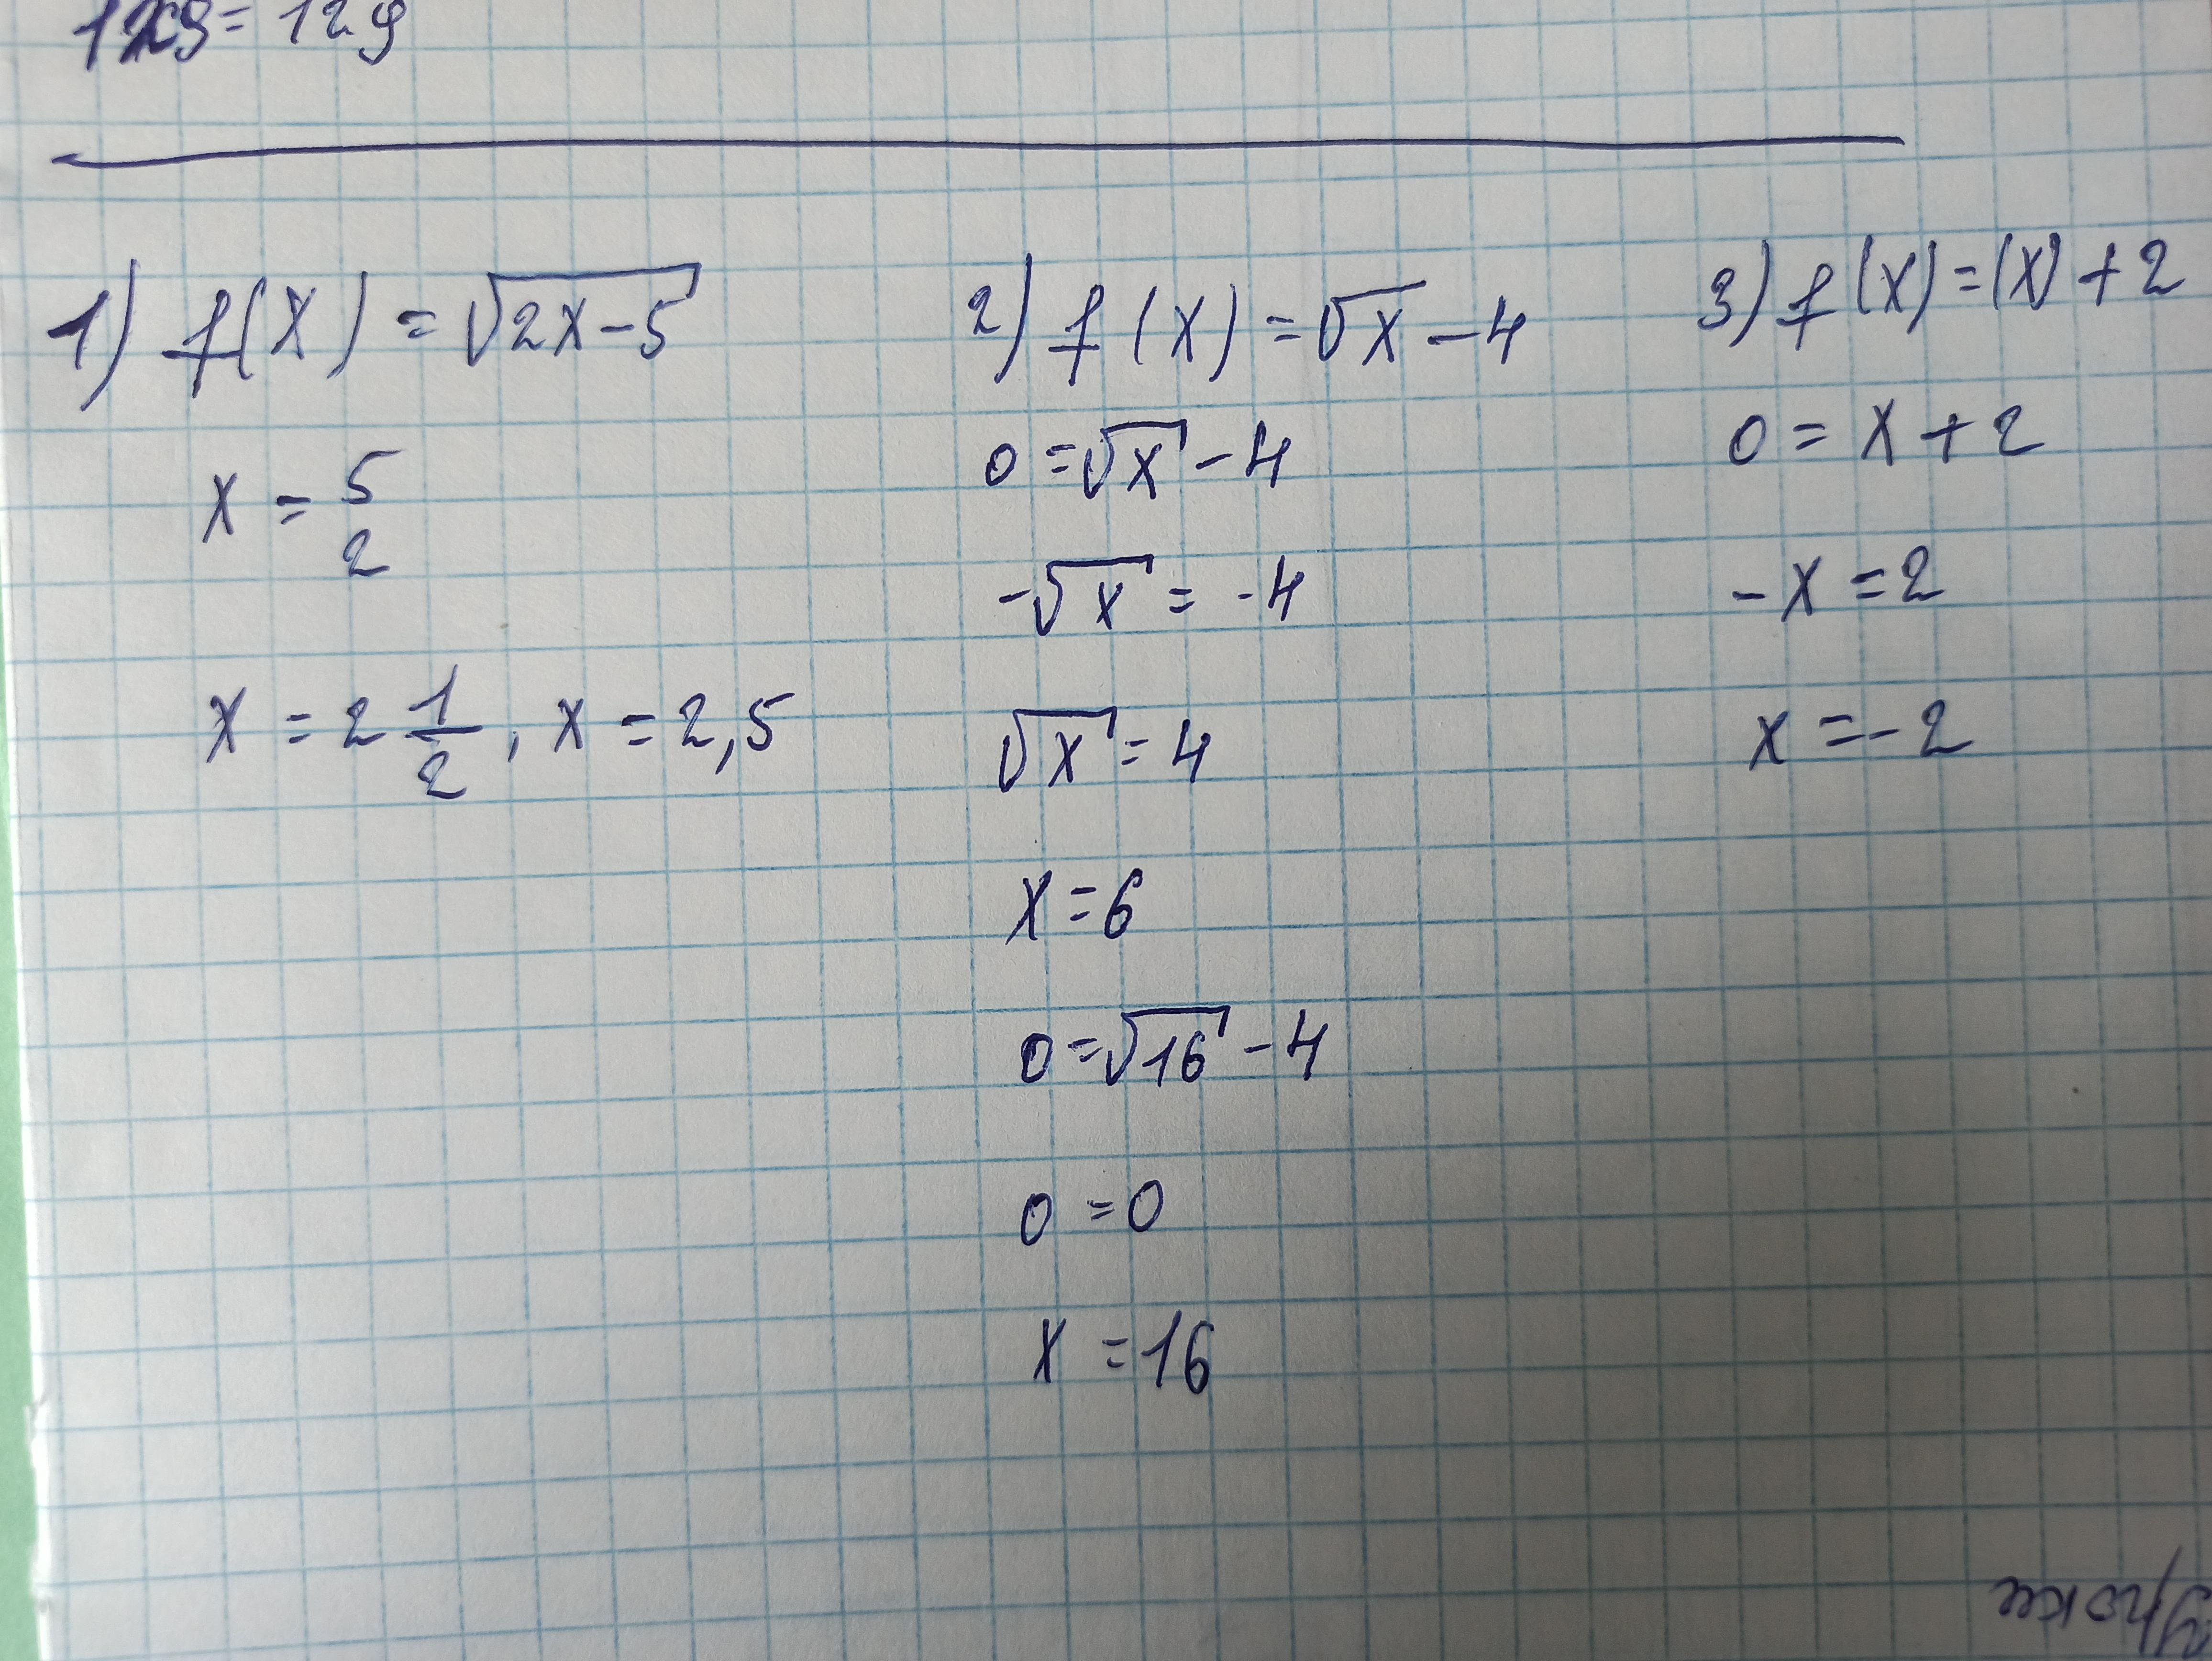 12xy = 12y
1) f(x) = √2x-5
x = 5/2
x = 2 1/2, x = 2,5
2) f(x) = √x - 4
0 = √x - 4
-√x = -4
√x = 4
x = 6
0 = √16 - 4
0 = 0
x = 16
3) f(x) = (x) + 2
0 = x + 2
-x = 2
x = -2